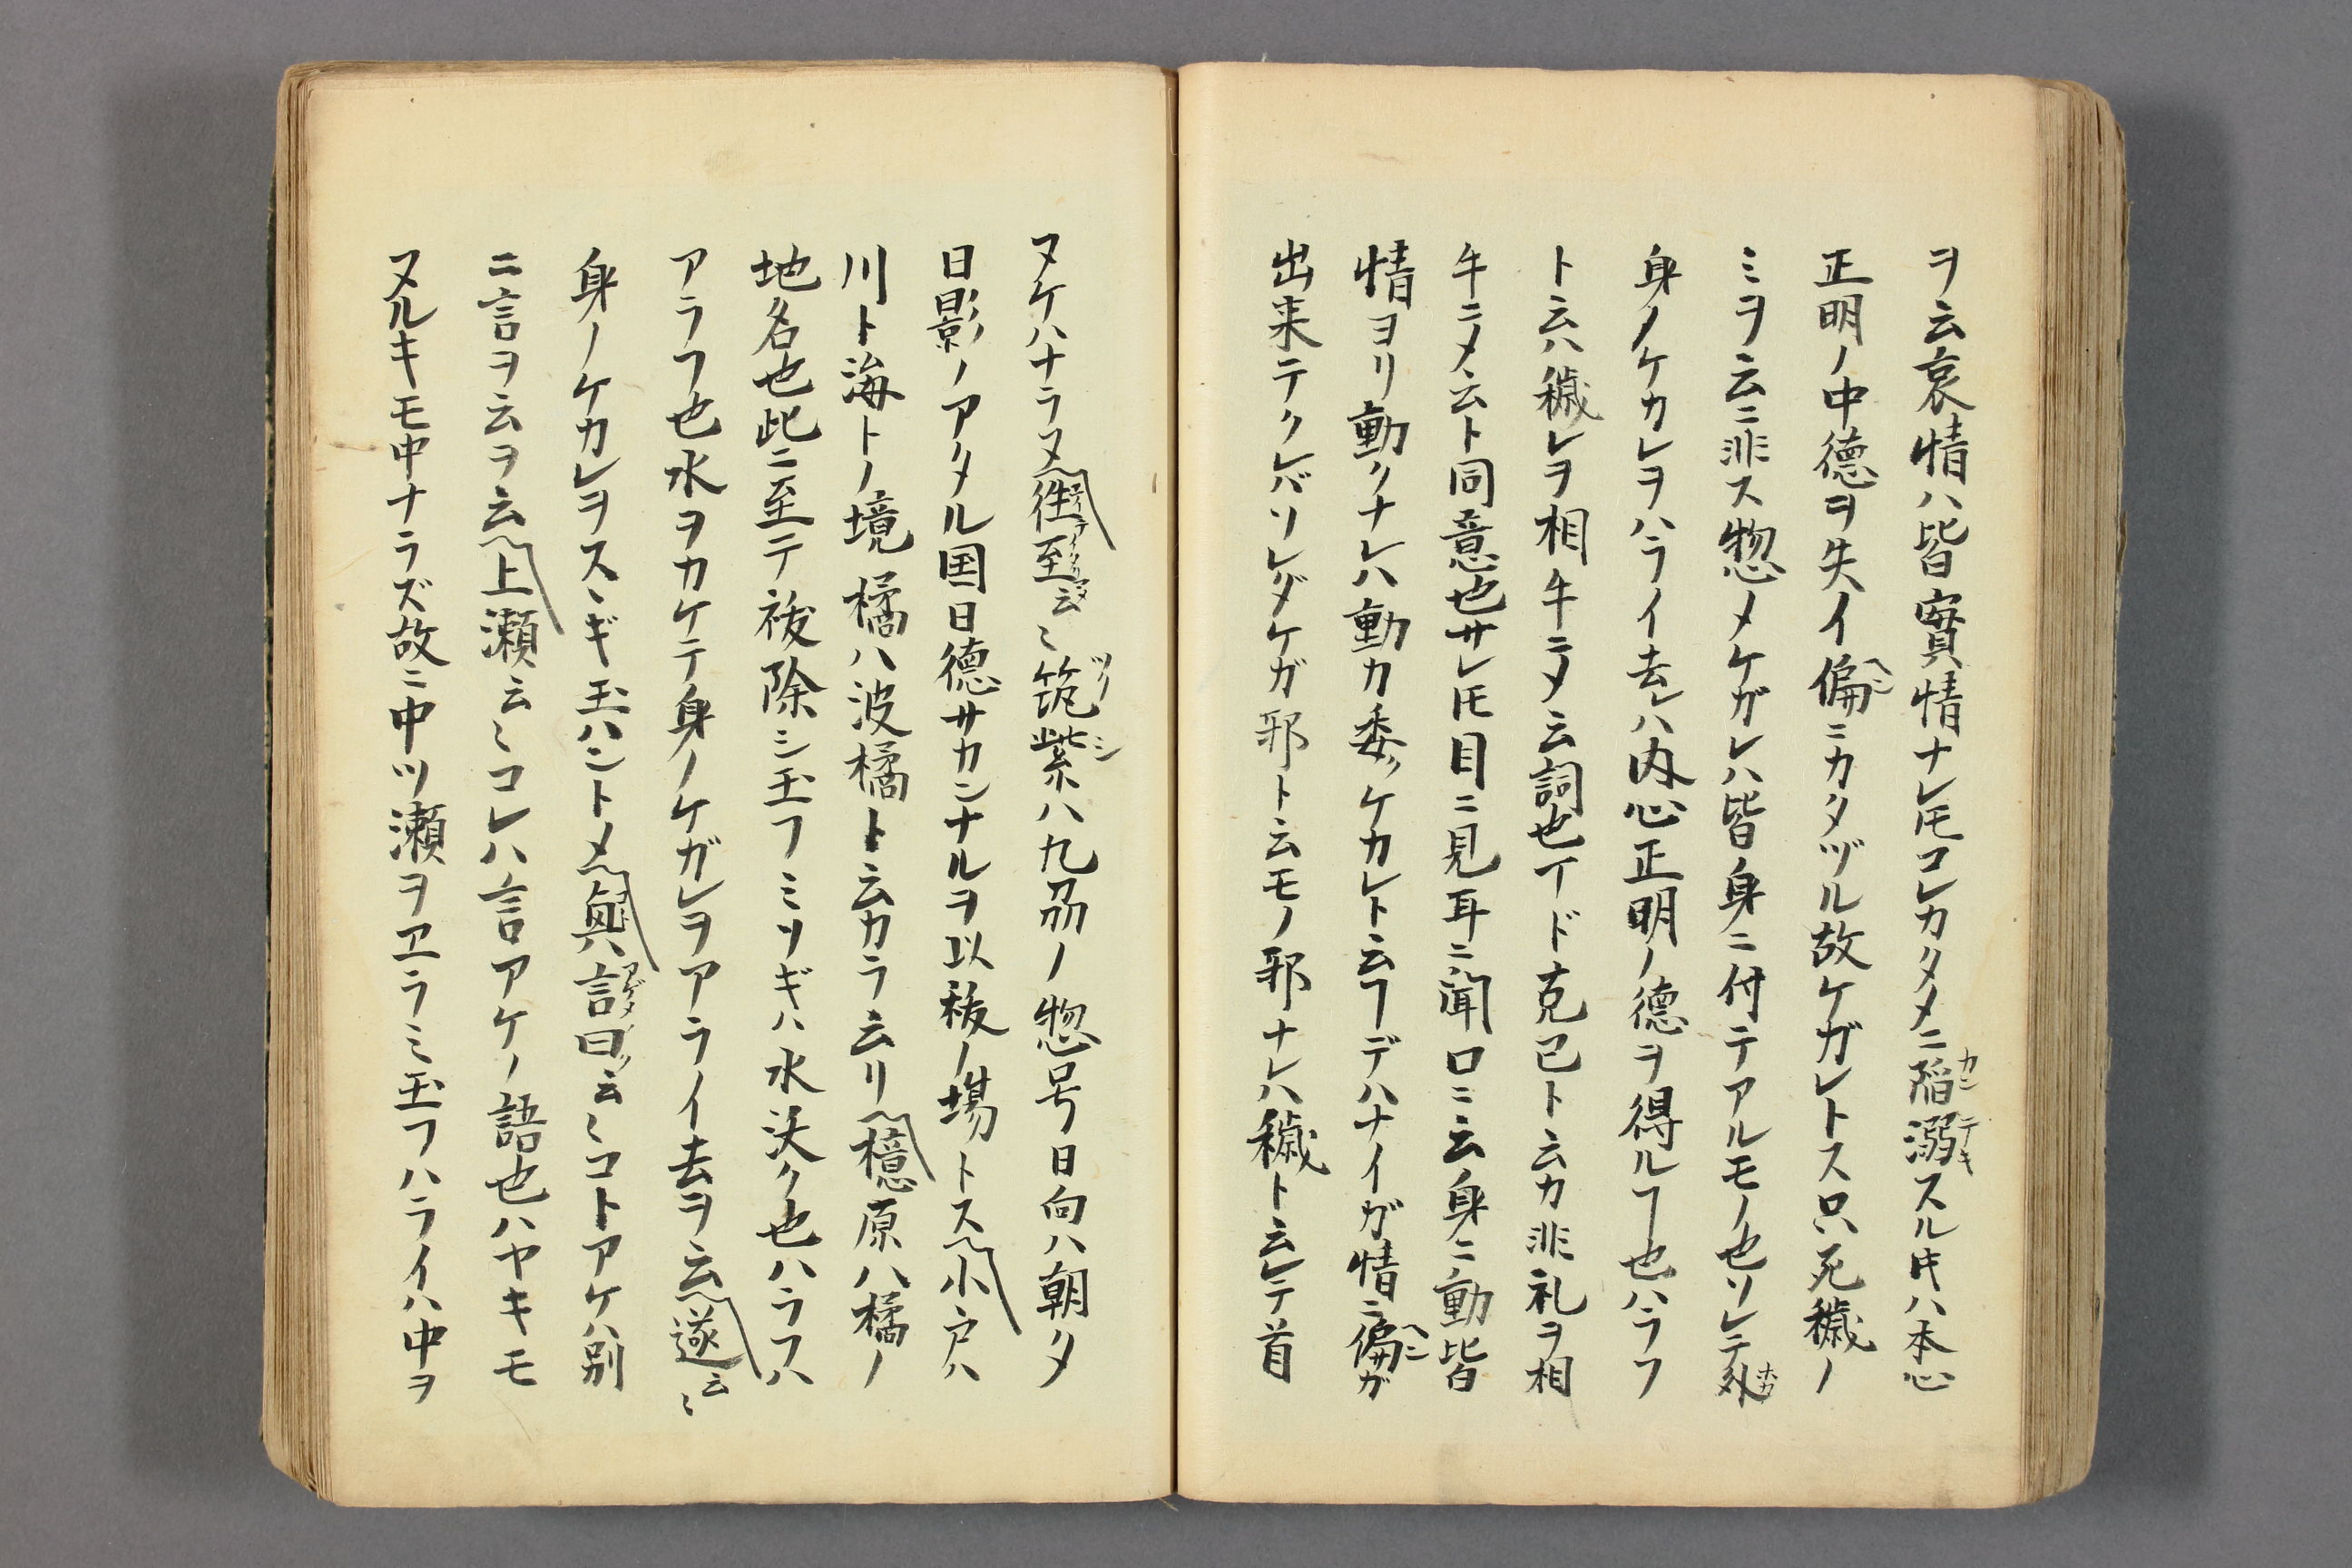 ヲ云哀情ハ皆實情ナレ𪜈コレカタメニ陥溺スル𪜈ハ本心
正明ノ中徳ヲ失イ偏ニカタヅル故ケガレトス只死穢ノ
ミヲ云ニ非ス惣〆ケガレハ皆身ニ付テアルモノ也ソレテ外
身ノケカレヲハライ去レハ内心正明ノ徳ヲ得ルヿ也ハラフ
ト云ハ穢レヲ相牛ニ〆云詞也イド克己ト云カ非礼ヲ相
牛ニ〆云ト同意也サレ𪜈目ニ見耳ニ聞口ニ云身ニ動皆
情ヨリ動クナレハ動カ委ケカレト云ヿデハナイガ情ニ偏ガ
出来テクレバソレダケガ邪ト云モノ邪ナレハ穢ト云レテ首
ヌケハナラヌ〽往至云〻筑紫ハ九刕ノ惣号日向ハ朝夕
日影ノアタル国日徳サカンナルヲ以祓ノ場トス〽小戸ハ
川ト海トノ境橘ハ波橘ト云カラ云リ〽檍原ハ橘ノ
地名也此ニ至テ祓除シ玉フミソギハ水沃ク也ハラフハ
アラフ也水ヲカケテ身ノケガレヲアライ去ヲ云〽遂云〻
身ノケカレヲスヽギ玉ハントメ〽興言曰云〻コトアケハ別
ニ言ヲ云ヲ云〽上瀬云〻コレハ言アケノ語也ハヤキモ
ヌルキモ中ナラズ故ニ中ツ瀬ヲヱラミ玉フハライハ中ヲ